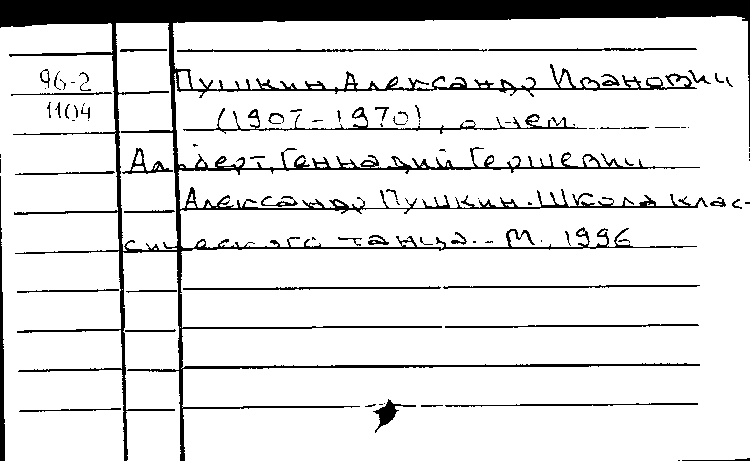 96-2
1104
Пушкин, Александр Иванович
(1907-1970), о нем.
Альберт, Геннадий Гершевич
Александр Пушкин. Школа клас-
сического танца. - М., 1996